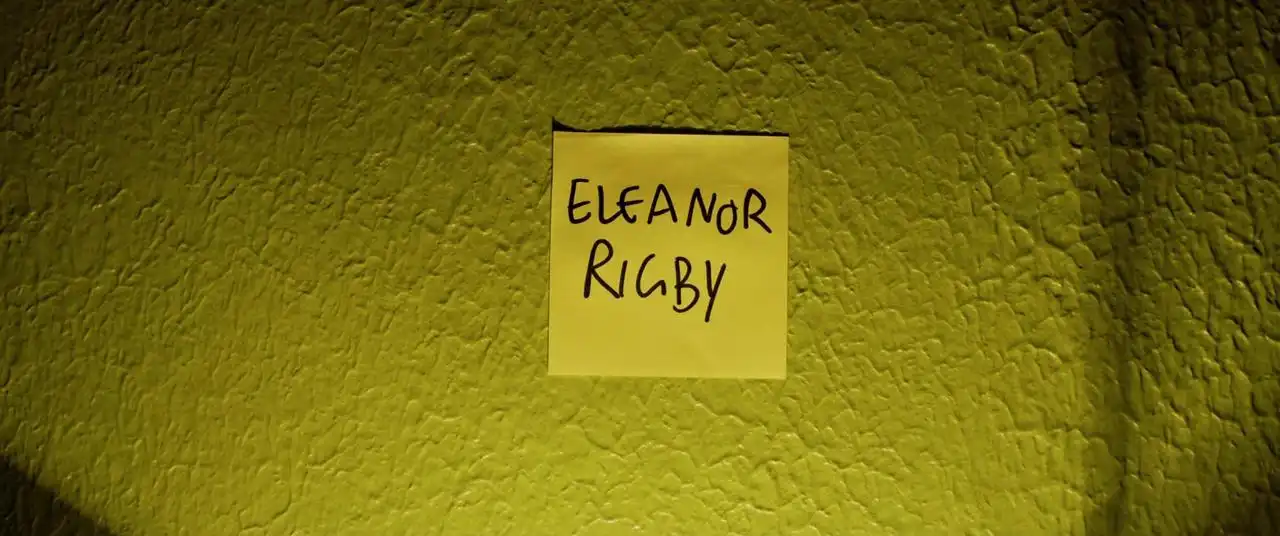 ELEANOR
RIGBY